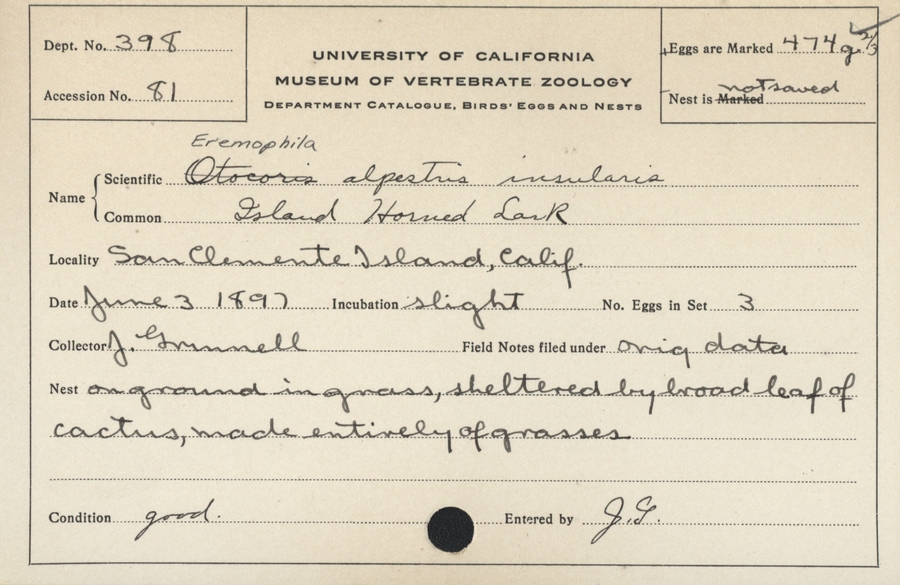 Dept. No. 398
Accession No. 81
UNIVERSITY OF CALIFORNIA
MUSEUM OF VERTEBRATE ZOOLOGY
DEPARTMENT CATALOGUE, BIRDS' EGGS AND NESTS
Eggs are Marked 474g 2/3
Nest is Marked not saved
Eremophila
Name
Scientific Otocoris alpestris insularis
Common Island Horned Lark
Locality San Clemente Island, Calif.
Date June 3 1897 Incubation slight No. Eggs in Set 3
Collector J. Grinnell Field Notes filed under orig data
Nest on ground in grass, sheltered by broad leaf of
cactus, made entirely of grasses
Condition good. Entered by J.G.